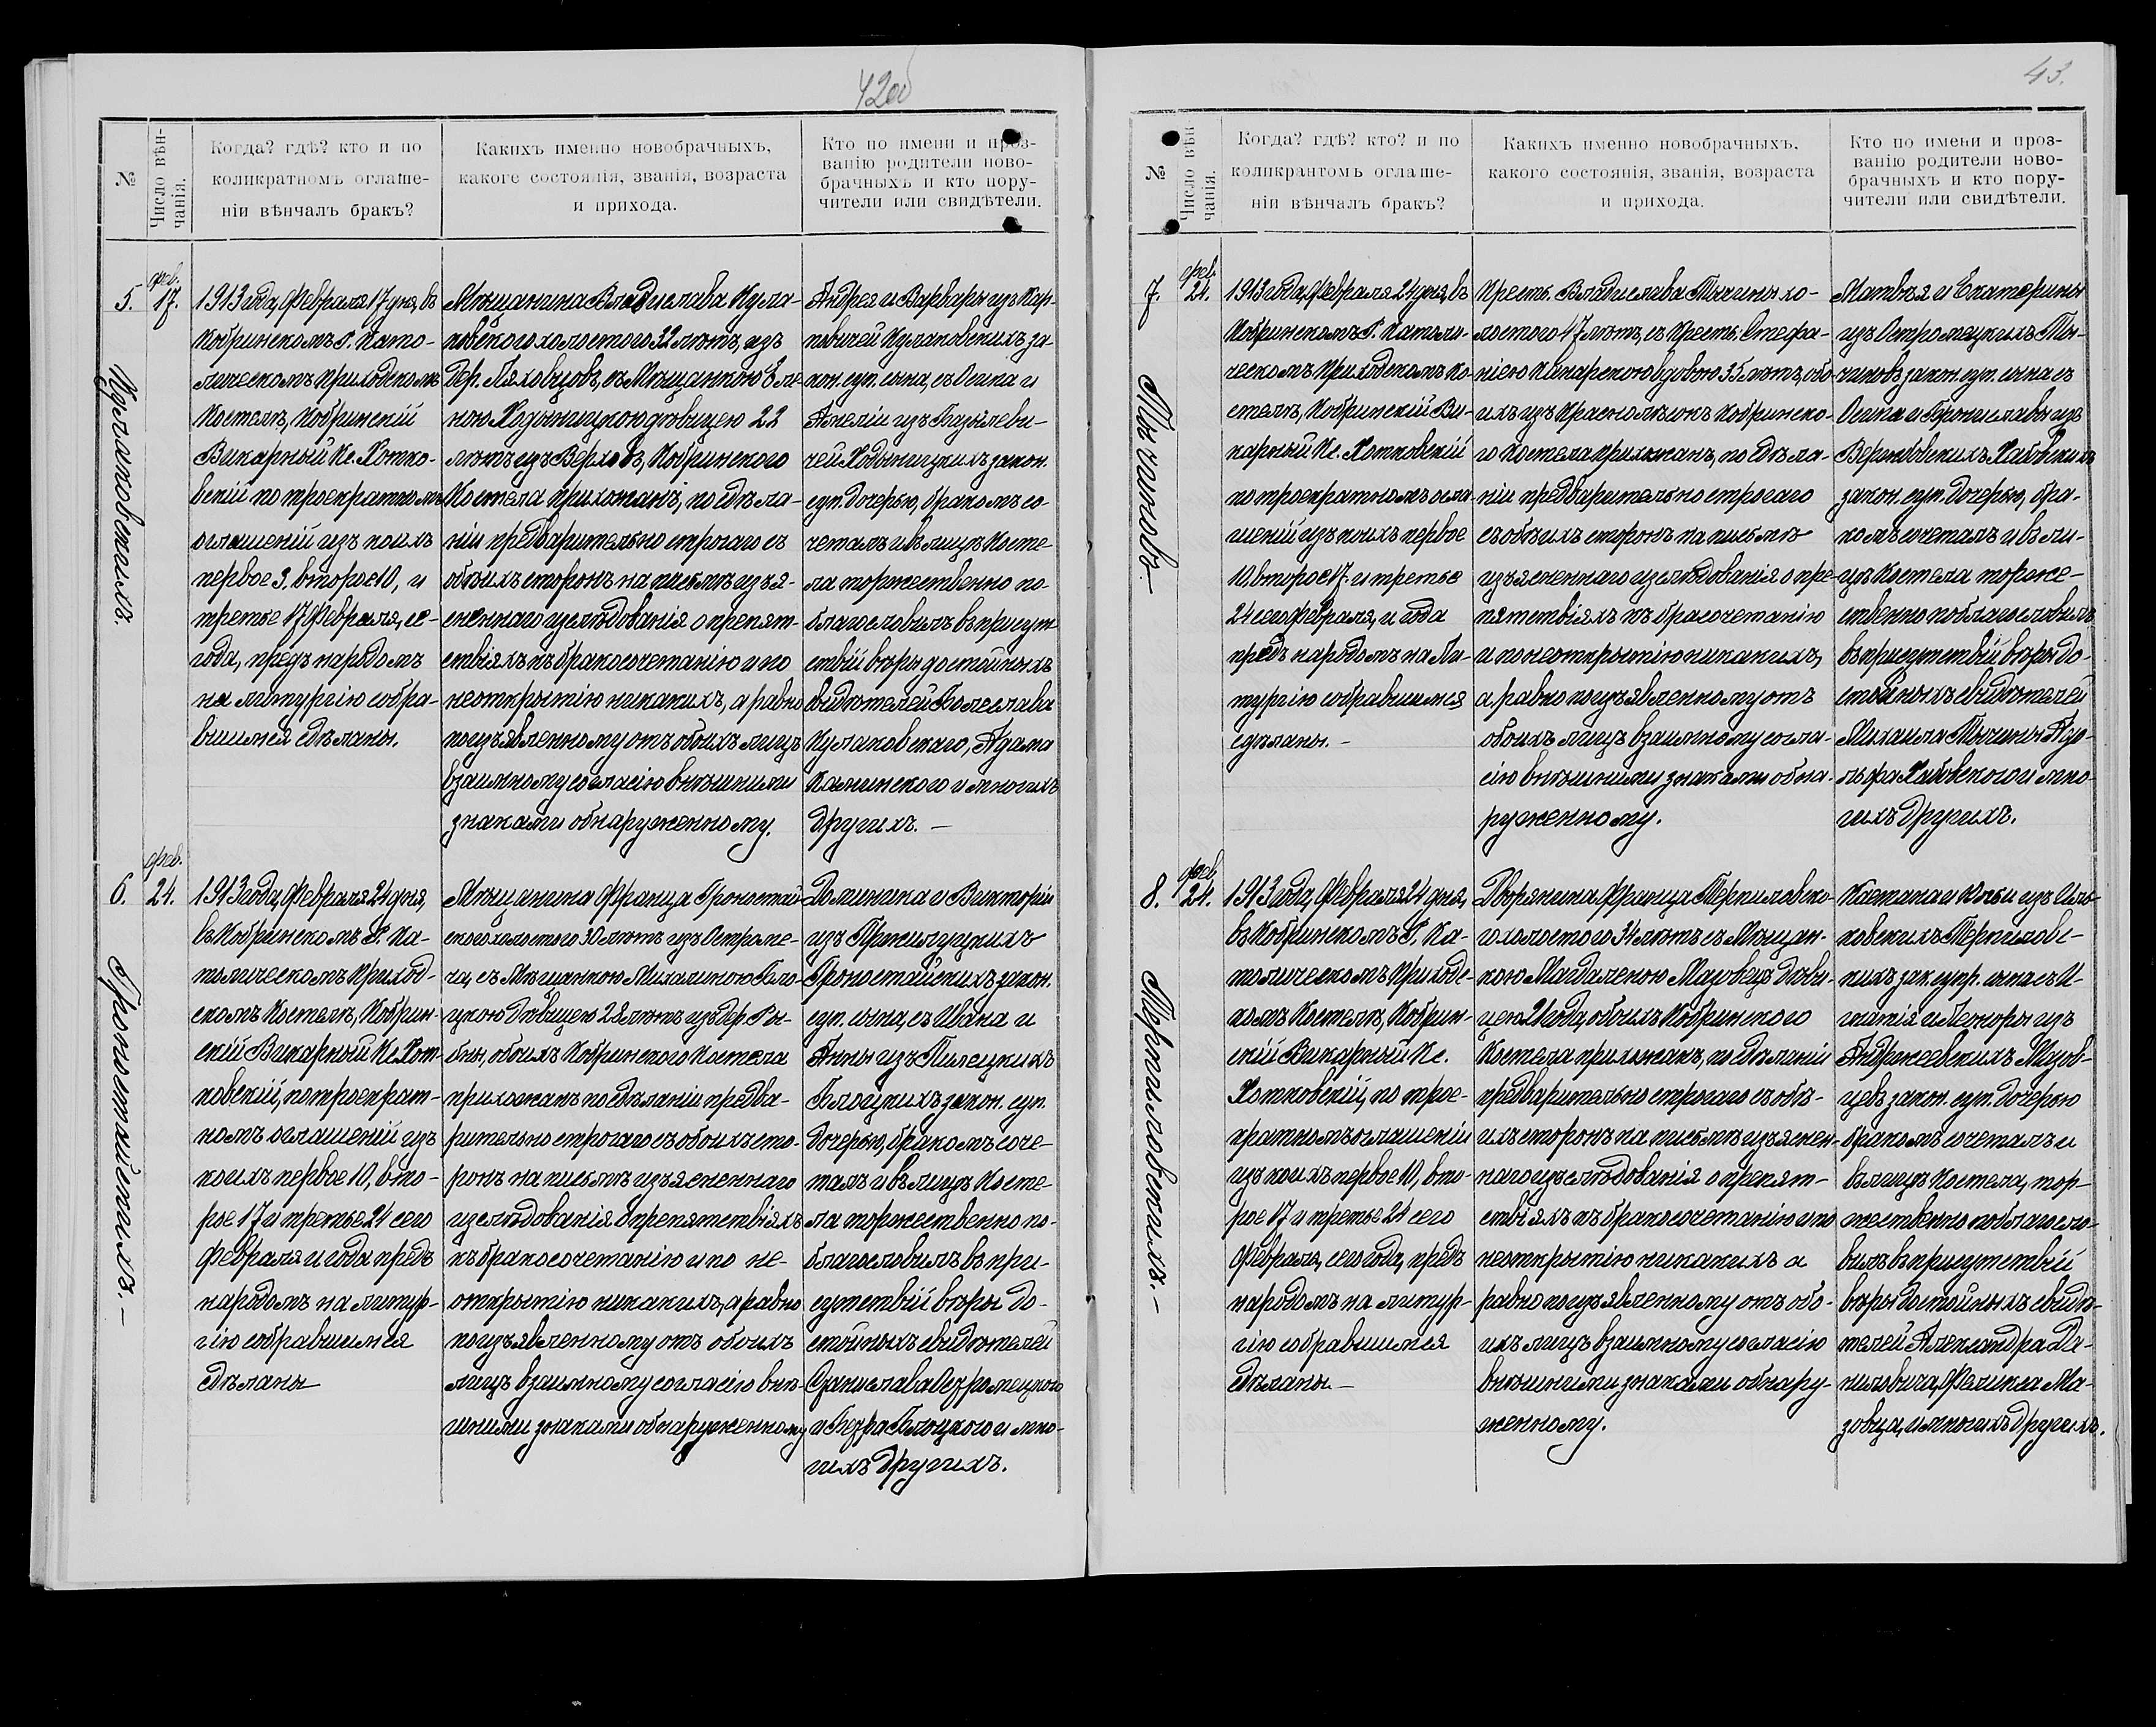 42об
№
Число вѣн-
чанія.
Когда? гдѣ? кто и по
коликратномъ оглаше-
ніи вѣнчалъ бракъ?
Какихъ именно новобрачныхъ,
какого состоянія, званія, возраста
и прихода.
Кто по имени и проз-
ванію родители ново-
брачныхъ и кто пору-
чители или свидѣтели.
5.
фев.
17.
Кулаковскихъ.
1913 года, Февраля 17 дня, въ
Кобринскомъ Р. Като-
лическомъ Приходскомъ
Костелѣ, Кобринскій
Викарный Кс. Хотко-
вскій по троекратномъ
оглашеній изъ коихъ
первое 3. второе 10, и
третье 17 Февраля, се-
года, предъ народомъ
на литургію собра-
вшимся сдѣланы.
Мѣщанина Владислава Кула-
ковского холостого 22 лѣтъ, изъ
Дер. Ляховцовъ, съ Мѣщанкою Еле
ною Ходыницкою дѣвицею 22
лѣтъ изъ Верховъ, Кобринского
Костела прихожанъ, по сдѣла-
ніи предварительно строгаго съ
обоихъ сторонъ на письмѣ изъя-
сненнаго изслѣдованія о препят-
ствіяхъ къ бракосочетанію и по
неоткрытію никакихъ, а равно
по изъявленному отъ обоихъ лицъ
взаимному согласію внѣшними
знаками обнаруженному.
Андрея и Варвары изъ Кар-
повичей Кулаковскихъ за-
кон. суп. сына, съ Осипа и
Анеліи изъ Базылеви-
чей Ходыницкихъ закон.
суп. дочерью, бракомъ со-
четалъ и въ лицѣ Косте
ла торжественно по-
благословилъ въ присут
ствій вѣры достойныхъ
свидѣтелей Болеслава
Кулаковского, Адама
Каминского и многихъ
другихъ. —
6.
фев.
24.
Гроностайскихъ. —
1913 года, Февраля 24 дня,
въ Кобринскомъ Р. Ка-
толическомъ Приход-
скомъ Костелѣ, Кобрин-
скій Викарный Кс. Хот-
ковскій, по троекрат-
номъ оглашеній изъ
коихъ первое 10, вто-
рое 17 и третье 24 сего
Февраля и года предъ
народомъ на литур-
гію собравшимся
сдѣланы
Мѣщанина Франца Гроностай-
ского холостого 30 лѣтъ изъ Остроме-
ча, съ Мѣщанкою Михалиною Бло-
цкою Дѣвицею 28 лѣтъ изъ Дер. Ры-
бны, обоихъ Кобринского Костела
прихожанъ по сдѣланіи предва-
рительно строгаго съ обоихъ сто-
ронъ на письмѣ изъясненнаго
изслѣдованія о препятствіяхъ
къ бракосочетанію и по не-
открытію никакихъ, а равно
по изъявленному отъ обоихъ
лицъ взаимному согласію внѣ-
шними знаками обнаруженному
Доминика и Викторіи
изъ Прилуцкихъ
Гроностайскихъ закон.
суп. сына, съ Ивана и
Анны изъ Пилецкихъ
Блоцкихъ закон. суп.
дочерью, бракомъ соче-
талъ и въ лицѣ Косте-
ла торжественно по-
благословилъ въ при-
сутствій вѣры до-
стойныхъ свидѣтелей
Станислава Остромецкого
и Петра Блоцкого и мно-
гихъ другихъ.
43.
№
Число вѣн
чанія.
Когда? гдѣ? кто? и по
коликрантомъ оглаше-
ніи вѣнчалъ бракъ?
Какихъ именно новобрачныхъ,
какого состоянія, званія, возраста
и прихода.
Кто по имени и проз-
ванію родители ново-
брачныхъ и кто пору-
чители или свидѣтели.
7.
фев.
24.
Тычиновъ
1913 года, Февраля 24 дня, въ
Кобринскомъ Р. Католи-
ческомъ Приходскомъ Ко-
стелѣ, Кобринскій Ви-
карный Кс. Хотковскій
по троекратномъ огла-
шеній изъ коихъ первое
10, второе 17 и третье
24 сего Февраля, и года
предъ народомъ на Ли-
тургію собравшимся
сдѣланы. —
Крест. Владислава Тычины хо-
лостого 47 лѣтъ, съ Крест. Стефа-
ніею Канарскою вдовою 35 лѣтъ, обо-
ихъ изъ Краснолѣсокъ Кобринско-
го Костела прихожанъ, по сдѣла-
ніи предварительно строгаго
съ обѣихъ сторонъ на письмѣ
изъясненнаго изслѣдованія о пре-
пятствіяхъ къ бракосочетанію
и по неоткрытію никакихъ,
а равно по изъявленному отъ
обоихъ лицъ взаимному согла-
сію внѣшними знаками обна-
руженному.
Матвѣя и Екатерины
изъ Остромецкихъ Ты-
чиновъ закон. суп. сына съ
Осипа и Брониславы изъ
Хабовскихъ
закон. суп. дочерью, бра-
комъ сочеталъ и въ ли-
цѣ Костела торже-
ственно поблагословилъ
въ присутствій вѣры до-
стойныхъ свидѣтелей
Михаила Тычины, Адо-
льфа Хабовского и мно-
гихъ другихъ.
8.
фев
24.
Терпиловскихъ. —
1913 года, Февраля 24 дня,
въ Кобринскомъ Р. Ка-
толическомъ Приходс-
комъ Костелѣ, Кобрин-
скій Викарный Кс.
Хотковскій, по трое-
кратномъ оглашеніи
изъ коихъ первое 10, вто-
рое 17 и третье 24 сего
Февраля, сего года, предъ
народомъ на литур-
гію собравшимся
сдѣланы —
Дворянина Франца Терпиловско-
го холостого 34 лѣтъ съ Мѣщан-
кою Магдаленою Мазовецъ Дѣви-
цею 21 года, обоихъ Кобринского
Костела прихожанъ, по сдѣланіи
предварительно строгаго съ обѣ-
ихъ сторонъ на письмѣ изъяснен-
наго изслѣдованія о препят-
ствіяхъ къ бракосочетанію и по
неоткрытію никакихъ а
равно по изъявленному отъ обо-
ихъ лицъ взаимному согласію
внѣшними знаками обнару-
женному.
Каетана и Юліи изъ Иль-
ковскихъ Терпиловс-
кихъ зак. супр. сына съ И-
гнатія и Леоноры изъ
Андржеевскихъ Мазов-
цевъ закон. суп. дочерью
бракомъ сочеталъ и
въ лицѣ Костела, тор-
жественно поблагосло-
вилъ въ присутствій
вѣры достойныхъ свидѣ-
телей Александра Да-
ниловича, Феликса Ма-
зовца, и многихъ другихъ.